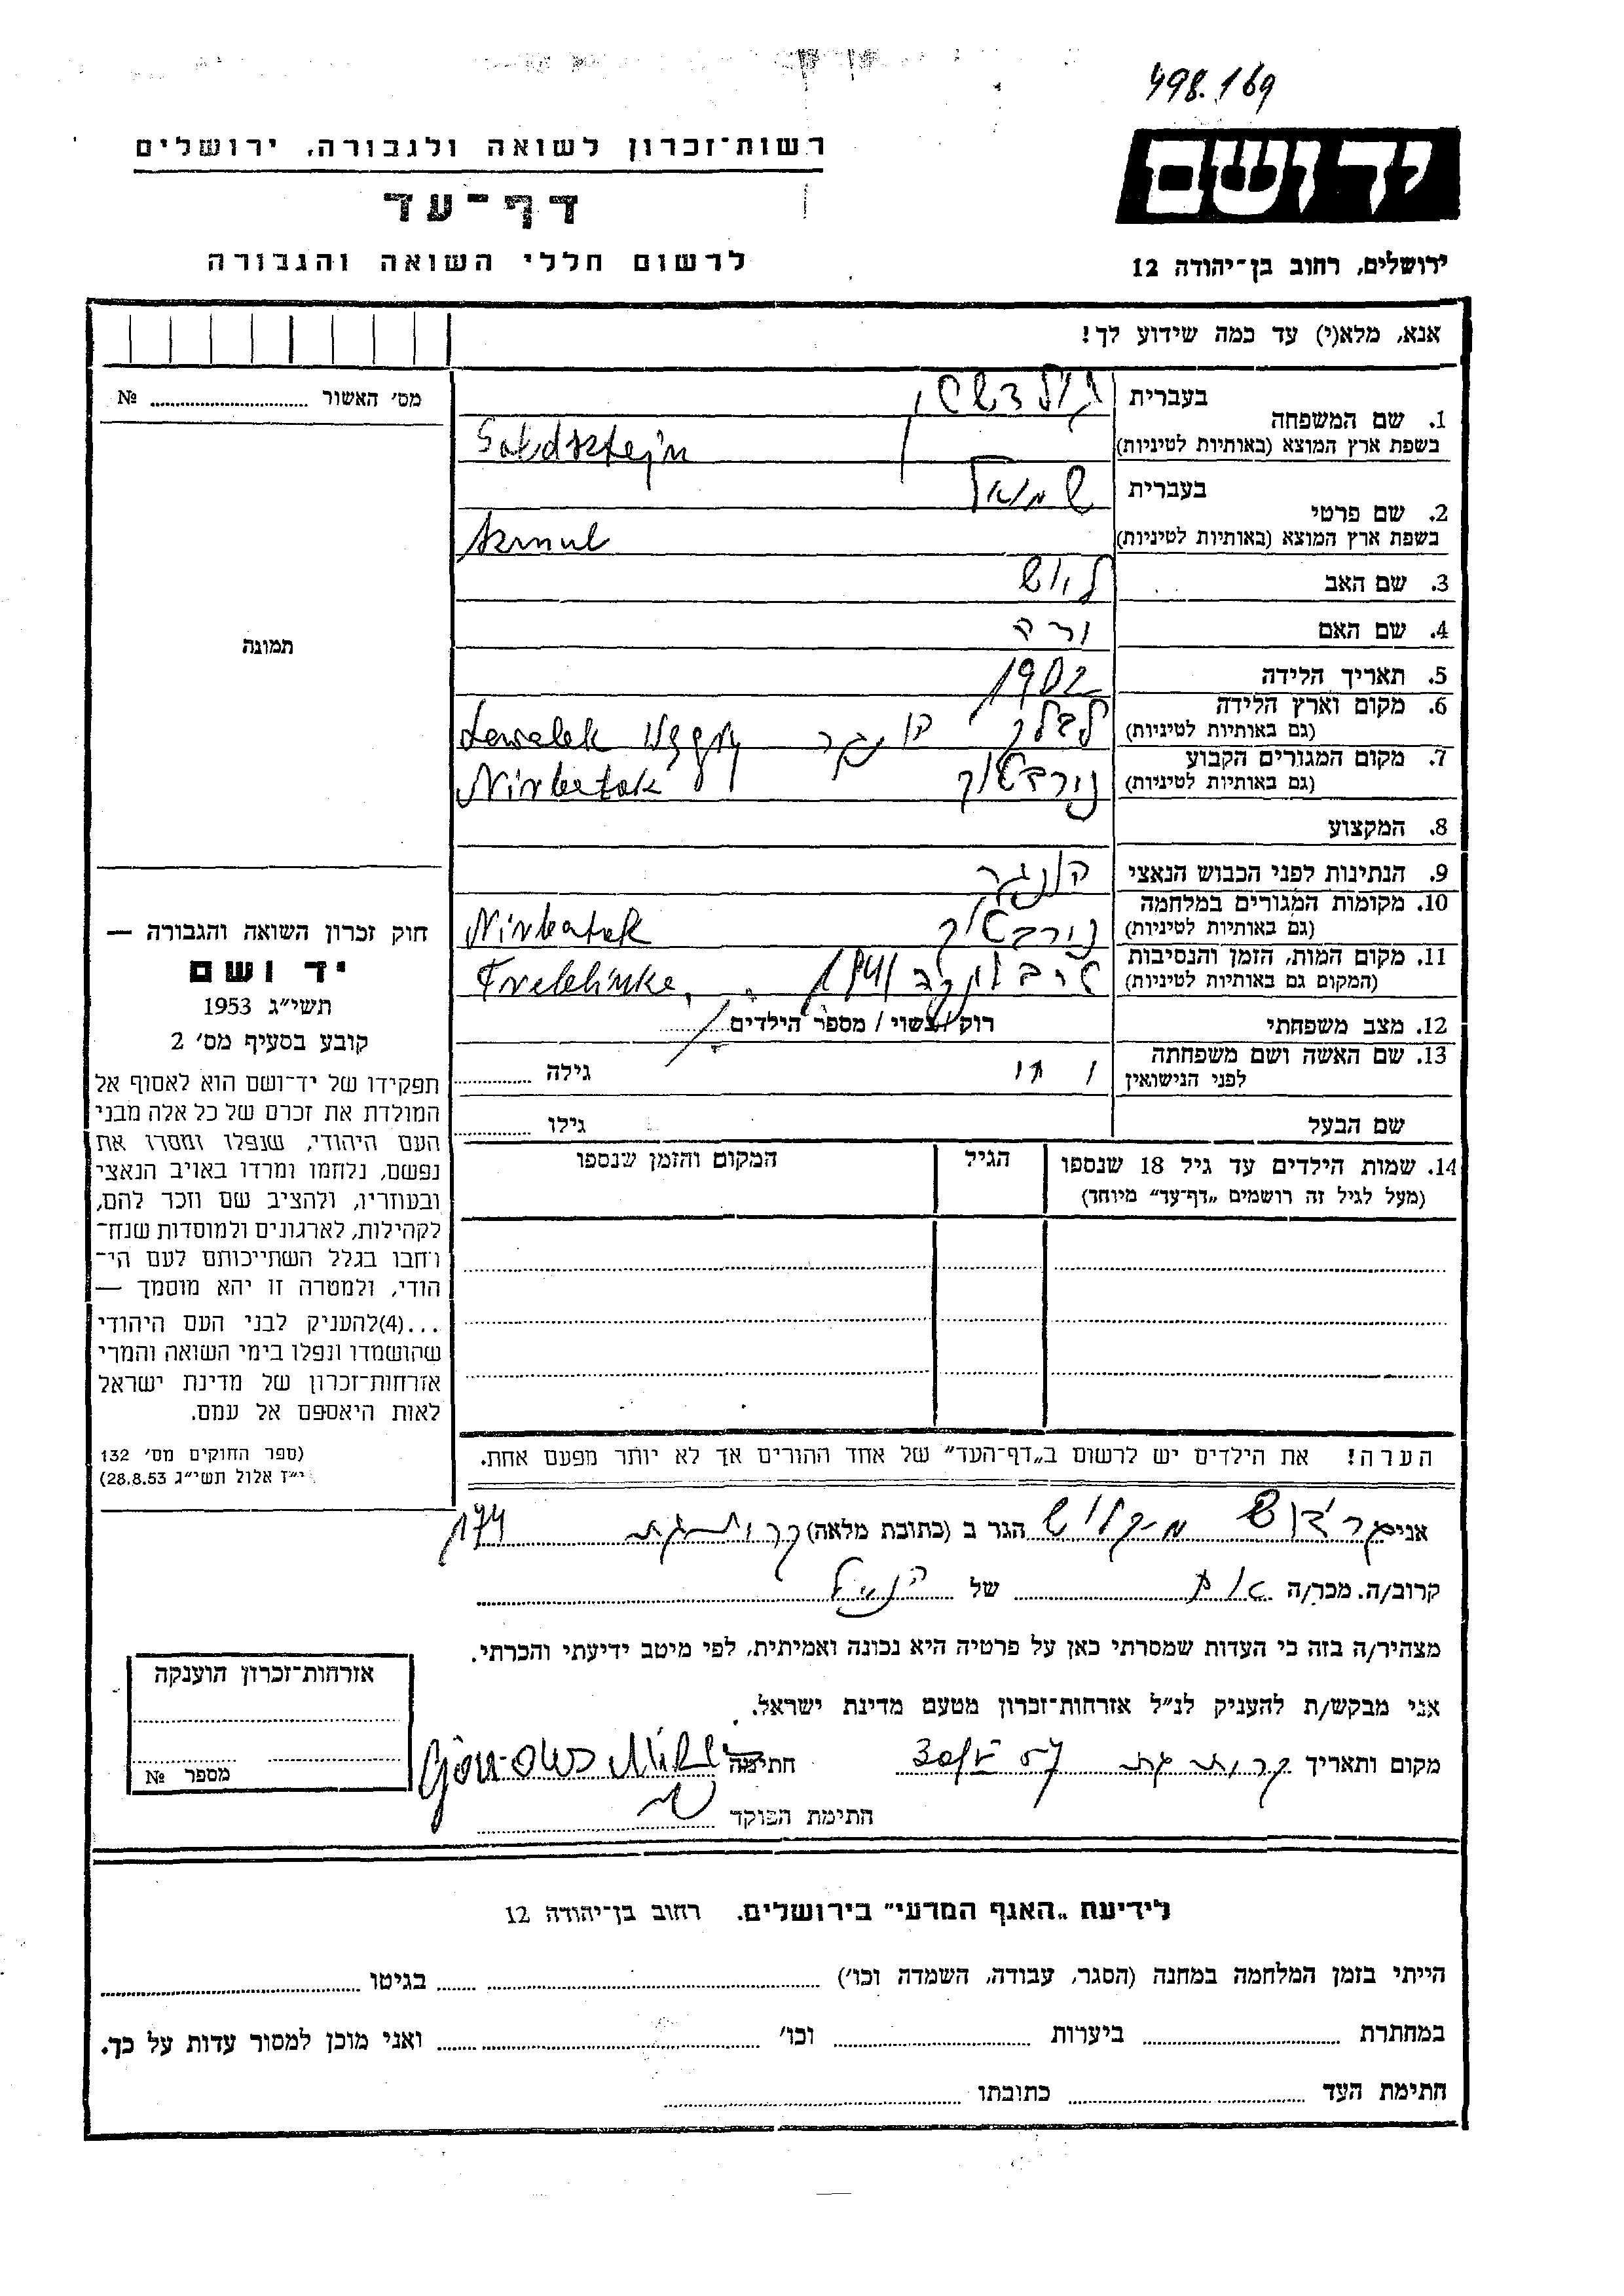 498.169
ידושם
רשות־זכרון לשואה ולגבורה, ירושלים
דף־עד
לרשום חללי השואה והגבורה
ירושלים, רחוב בן־יהודה 12
אנא, מלא(י) עד כמה שידוע לך!
מס' האשור № 
תמונה
1. שם המשפחה
בעברית
בשפת ארץ המוצא (באותיות לטיניות)
2. שם פרטי
בעברית שמואל
בשפת ארץ המוצא (באותיות לטיניות)
3. שם האב
4. שם האם
5. תאריך הלידה 1902
6. מקום וארץ הלידה
(גם באותיות לטיניות)
7. מקום המגורים הקבוע
(גם באותיות לטיניות) נירבטור
8. המקצוע
9. הנתינות לפני הכבוש הנאצי הונגר
10. מקומות המגורים במלחמה
(גם באותיות לטיניות) נירבטור
11. מקום המות, הזמן והנסיבות
(המקום גם באותיות לטיניות) טרבלינקה 1941
12. מצב משפחתי רוק / נשוי / מספר הילדים
13. שם האשה ושם משפחתה
לפני הנישואין גילה
שם הבעל גילו
14. שמות הילדים עד גיל 18 שנספו
(מעל לגיל זה רושמים „דף־עד” מיוחד)
הגיל
המקום והזמן שנספו
הערה! את הילדים יש לרשום ב„דף־העד” של אחד ההורים אך לא יותר מפעם אחת.
חוק זכרון השואה והגבורה —
יד ושם
תשי״ג 1953
קובע בסעיף מס' 2
תפקידו של יד־ושם הוא לאסוף אל
המולדת את זכרם של כל אלה מבני
העם היהודי, שנפלו ומסרו את
נפשם, נלחמו ומרדו באויב הנאצי
ובעוזריו, ולהציב שם וזכר להם,
לקהילות, לארגונים ולמוסדות שנח־
רחבו בגלל השתייכותם לעם הי־
הודי, ולמטרה זו יהא מוסמך —
...(4)להעניק לבני העם היהודי
שהושמדו ונפלו בימי השואה והמרי
אזרחות־זכרון של מדינת ישראל
לאות היאספם אל עמם.
(ספר החוקים מס' 132
י״ז אלול תשי״ג 28.8.53)
אני מיקלוש הגר ב (כתובת מלאה) קרית גת 174
קרוב/ה. מכר/ה של הנ״ל
מצהיר/ה בזה כי העדות שמסרתי כאן על פרטיה היא נכונה ואמיתית, לפי מיטב ידיעתי והכרתי.
אני מבקש/ת להעניק לנ״ל אזרחות־זכרון מטעם מדינת ישראל.
מקום ותאריך קרית גת חתימה
חתימת הפוקד
אזרחות־זכרון הוענקה
מספר №
לידיעת „האגף המדעי” בירושלים. רחוב בן־יהודה 12
הייתי בזמן המלחמה במחנה (הסגר, עבודה, השמדה וכו') בגיטו
במחתרת ביערות וכו' ואני מוכן למסור עדות על כך.
חתימת העד כתובתו